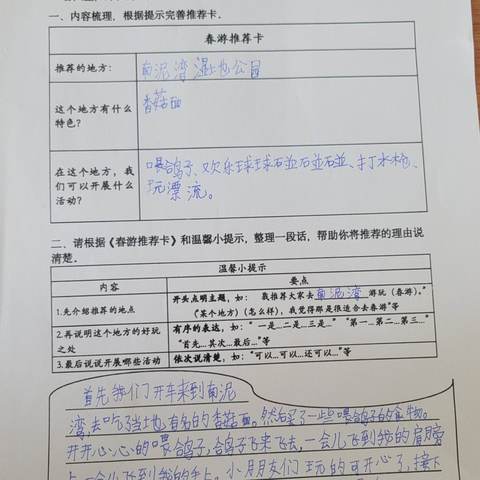 一、内容梳理，根据提示完善推荐卡．
春游推荐卡
推荐的地方：
南泥湾湿地公园
这个地方有什么
特色？
香菇面
在这个地方，我
们可以开展什么
活动？
喂鸽子、欢乐球球碰碰碰、打水枪、
玩漂流。
二、请根据《春游推荐卡》和温馨小提示，整理一段话，帮助你将推荐的理由说
清楚．
温馨小提示
内容
要点
1.先介绍推荐的地点
开头点明主题，如：我推荐大家去南泥湾游玩（春游）。”
“（某个地方）（怎么样），我觉得那是很适合去春游”等
2.再说明这个地方的好玩
之处
有序的表达，如：“一是…二是…三是…”“第一…第二…第三…”
“首先…其次…最后…”等
3.最后说说开展哪些活动
依次说清楚，如：“可以…可以…还可以…”等
首先我们开车来到南泥
湾，去吃当地有名的香菇面。然后买了一些喂鸽子的食物。
开开心心的喂鸽子，鸽子飞来飞去，一会儿飞到我的肩膀
上，一会儿飞到我的手上。小朋友们玩的可开心了，接下